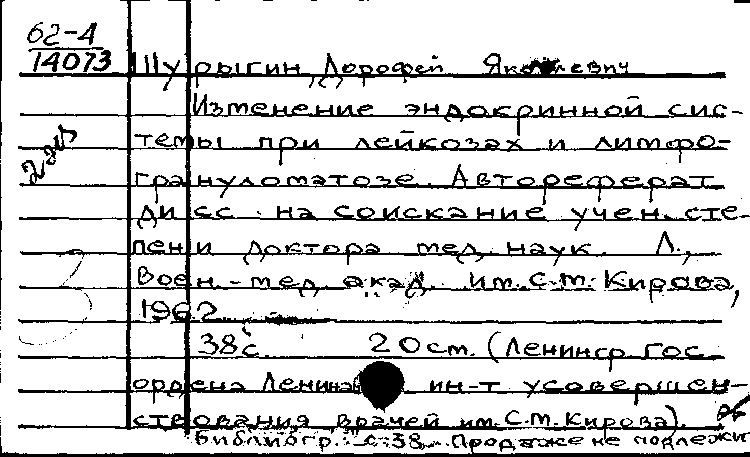 62-4
14073 Шурыгин, Дорофей Яковлевич
Изменение эндокринной сис-
темы при лейкозах и лимфо-
2 экз
гранулематозе. Автореферат
дисс. на соискание учен. сте-
пени доктора мед. наук. Л.,
Воен.-мед. акад. им. С.М. Кирова,
1962.
38 с. 20 см. (Ленингр. гос.
ордена Ленина ин-т усовершен-
ствования врачей им. С.М. Кирова).
Библиогр.: с. 38. Продаже не подлежит